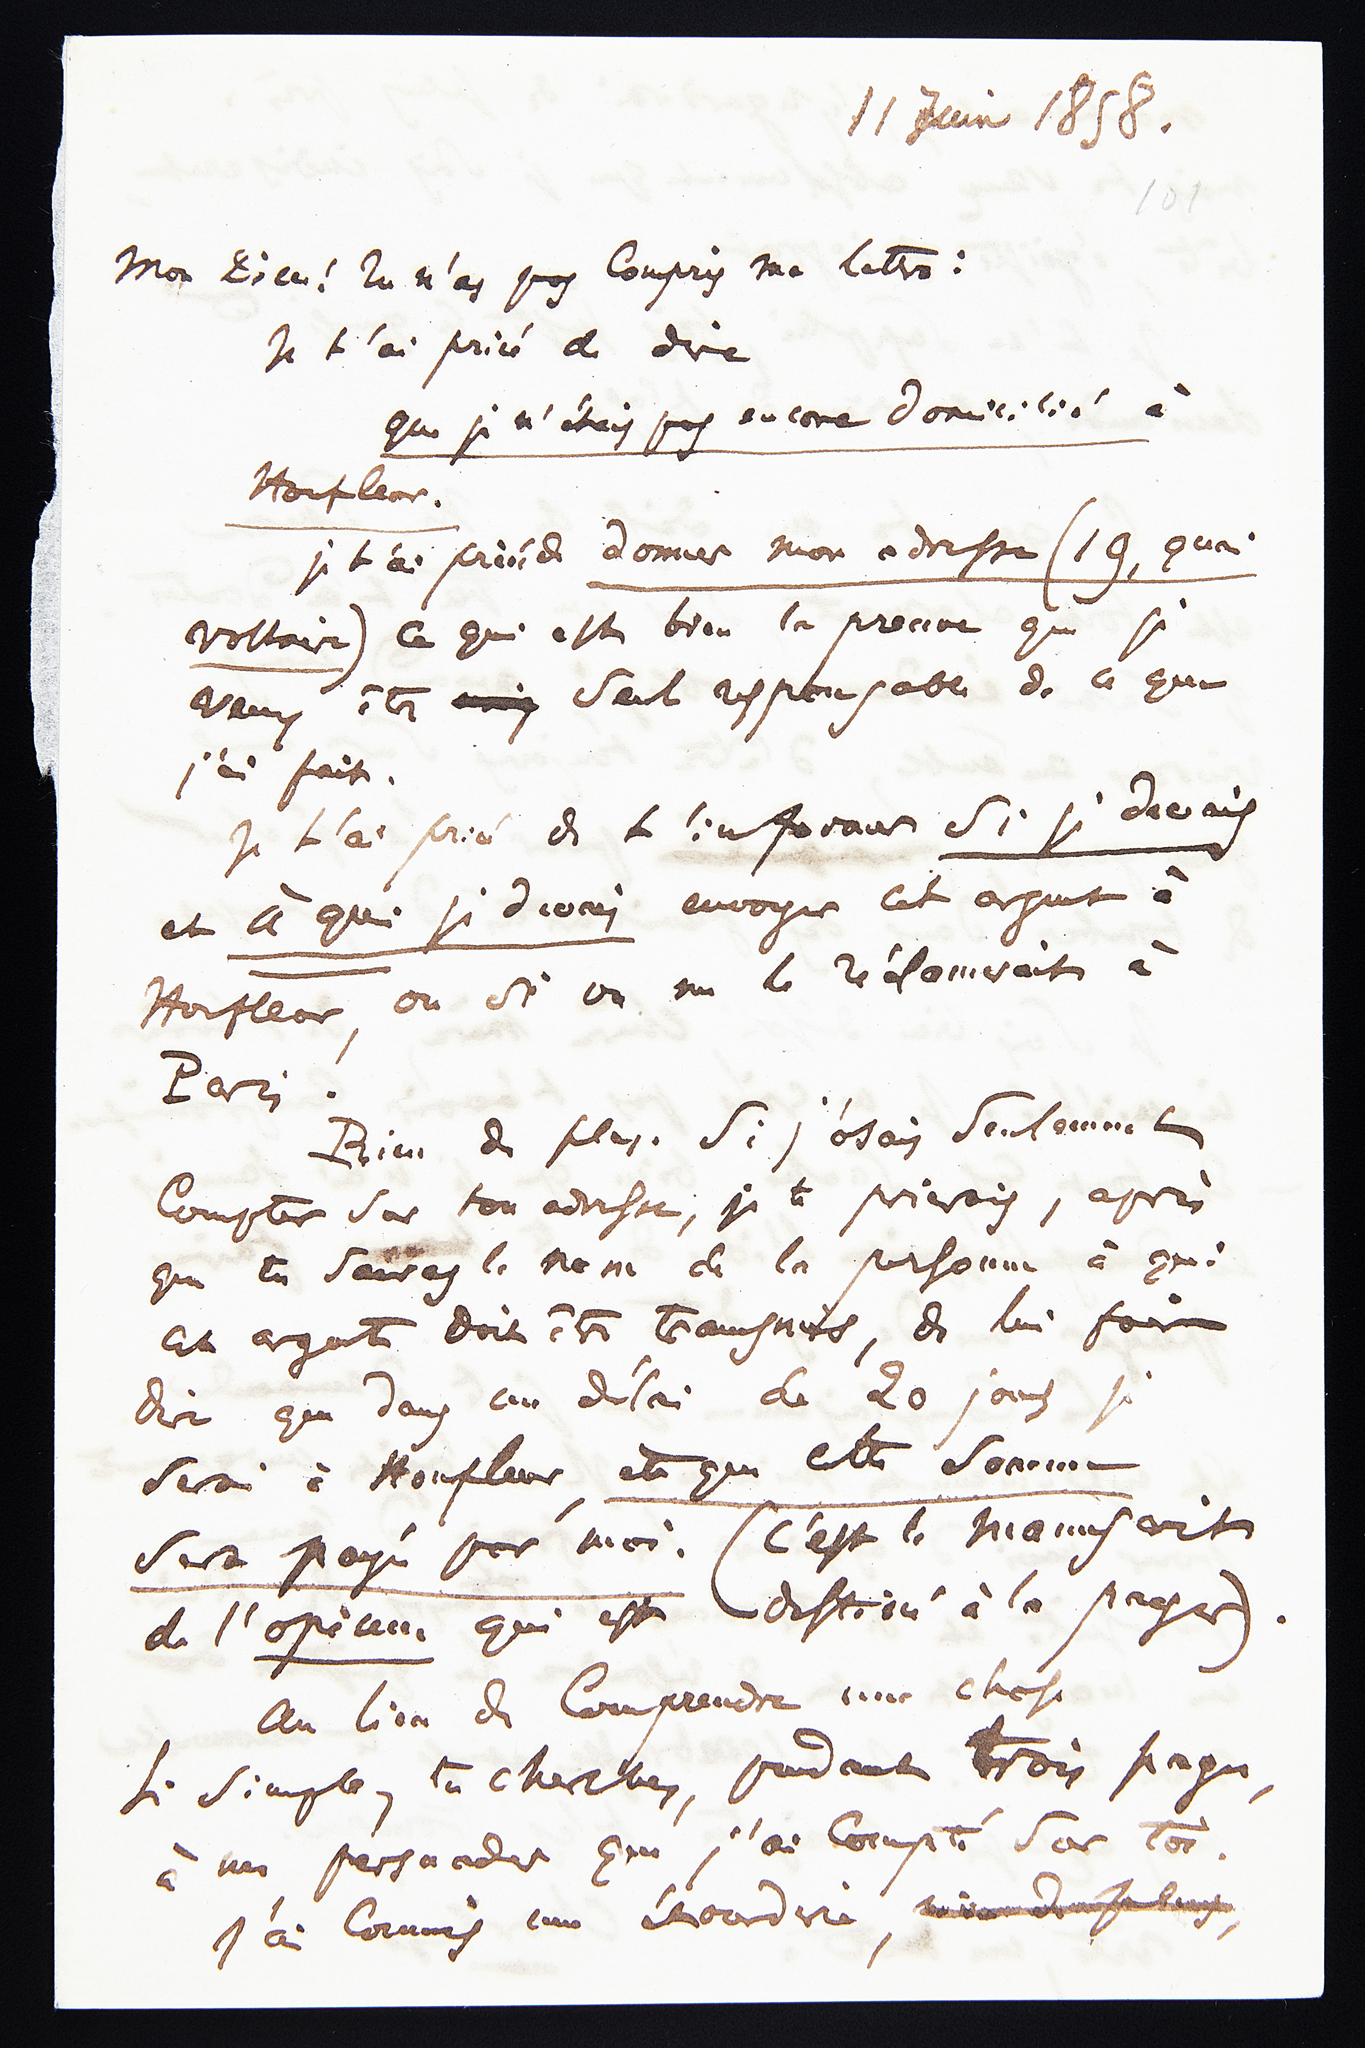 11 Juin 1858.
101
Mon Dieu! Tu n'as pas compris ma lettre:
Je t'ai prié de dire
que je n'étais pas encore domicilié à
Honfleur.
je t'ai prié de donner mon adresse (19, quai
voltaire) ce qui est bien la preuve que je
veux être seul responsable de ce que
j'ai fait.
Je t'ai prié de t'informer si je devais
et à qui je devais envoyer cet argent à
Honfleur, ou si on me le réclamerait à
Paris!
Rien de plus. Si j'osais seulement
compter sur ton adresse, je te prierais, après
que tu sauras le nom de la personne à qui
cet argent doit être transmis, de lui faire
dire que dans un délai de 20 jours je
serai à Honfleur, et que cette somme
sera payée par moi. (c'est le manuscrit
de l'opium qui est destiné à la payer).
Au lieu de comprendre une chose
si simple, tu cherches, pendant trois pages,
à me persuader que j'ai compté sur toi.
J'ai commis une étourderie,